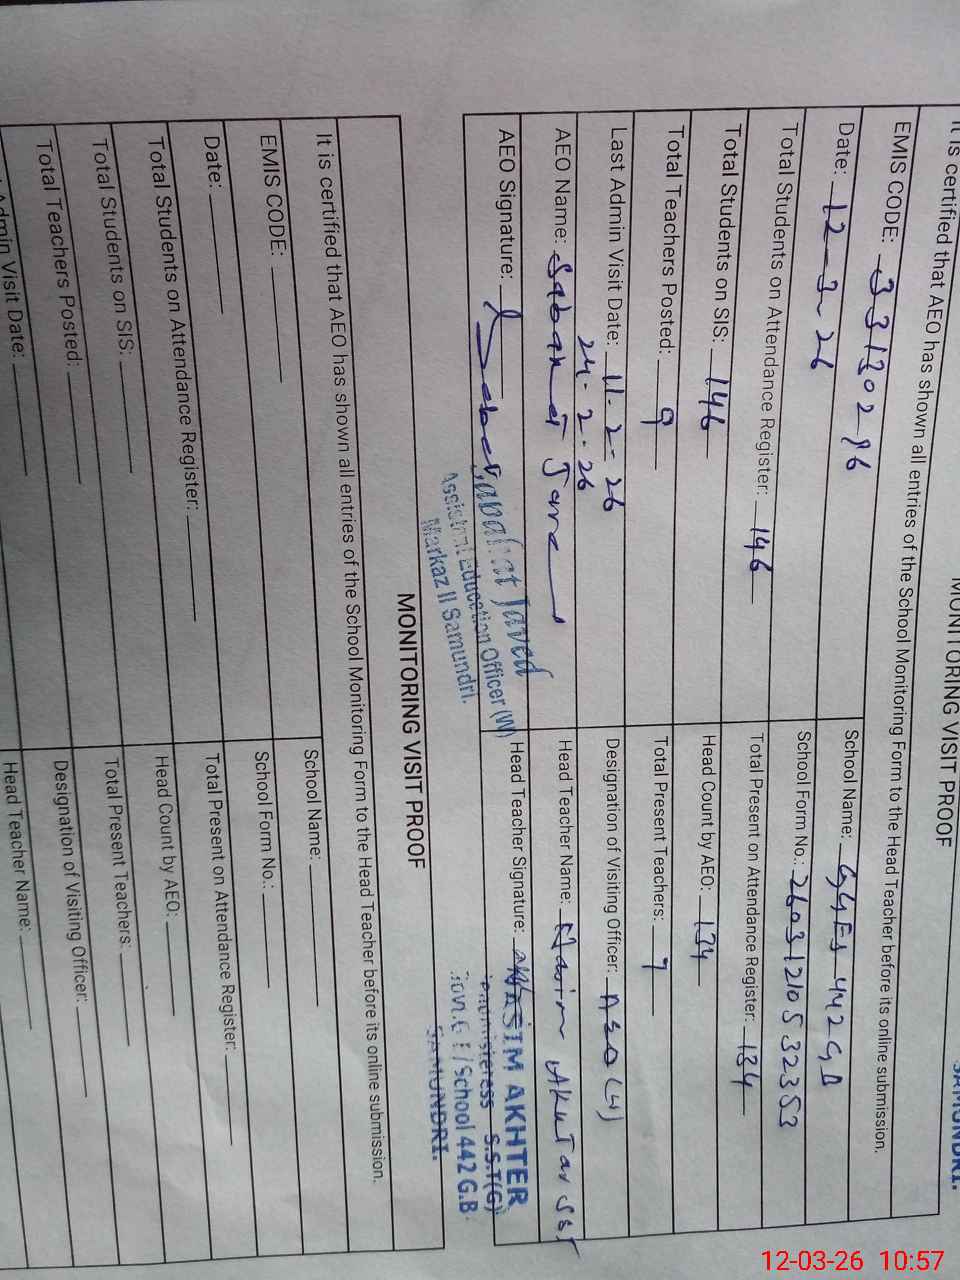 SAMUNDRI.
MONITORING VISIT PROOF
It is certified that AEO has shown all entries of the School Monitoring Form to the Head Teacher before its online submission.
EMIS CODE: 33130286 School Name: GGES 442 GB
Date: 12-3-26 School Form No.: 260312105 32353
Total Students on Attendance Register: 146 Total Present on Attendance Register: 134
Total Students on SIS: 146 Head Count by AEO: 134
Total Teachers Posted: 9 Total Present Teachers: 7
Last Admin Visit Date: 11-2-26 Designation of Visiting Officer: AEO (W)
24-2-26
AEO Name: Sabahat Javed Head Teacher Name: Nasim Akhtar SST
AEO Signature: Head Teacher Signature:
Sabahat Javed
Assistant Education Officer (W)
Markaz II Samundri.
NASIM AKHTER
S.S.T(G)
School 442 G.B.
SAMUNDRI.
MONITORING VISIT PROOF
It is certified that AEO has shown all entries of the School Monitoring Form to the Head Teacher before its online submission.
EMIS CODE: School Name:
Date: School Form No.:
Total Students on Attendance Register: Total Present on Attendance Register:
Total Students on SIS: Head Count by AEO:
Total Teachers Posted: Total Present Teachers:
Admin Visit Date: Designation of Visiting Officer:
Head Teacher Name:
12-03-26 10:57